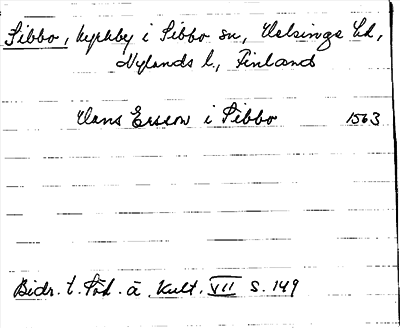 Sibbo, kyrkby i Sibbo sn, Helsinge hd,
Nylands l., Finland
Hans Ersson i Sibbo 1563
Bidr. t. Söd. ä. Kult. VII s. 149